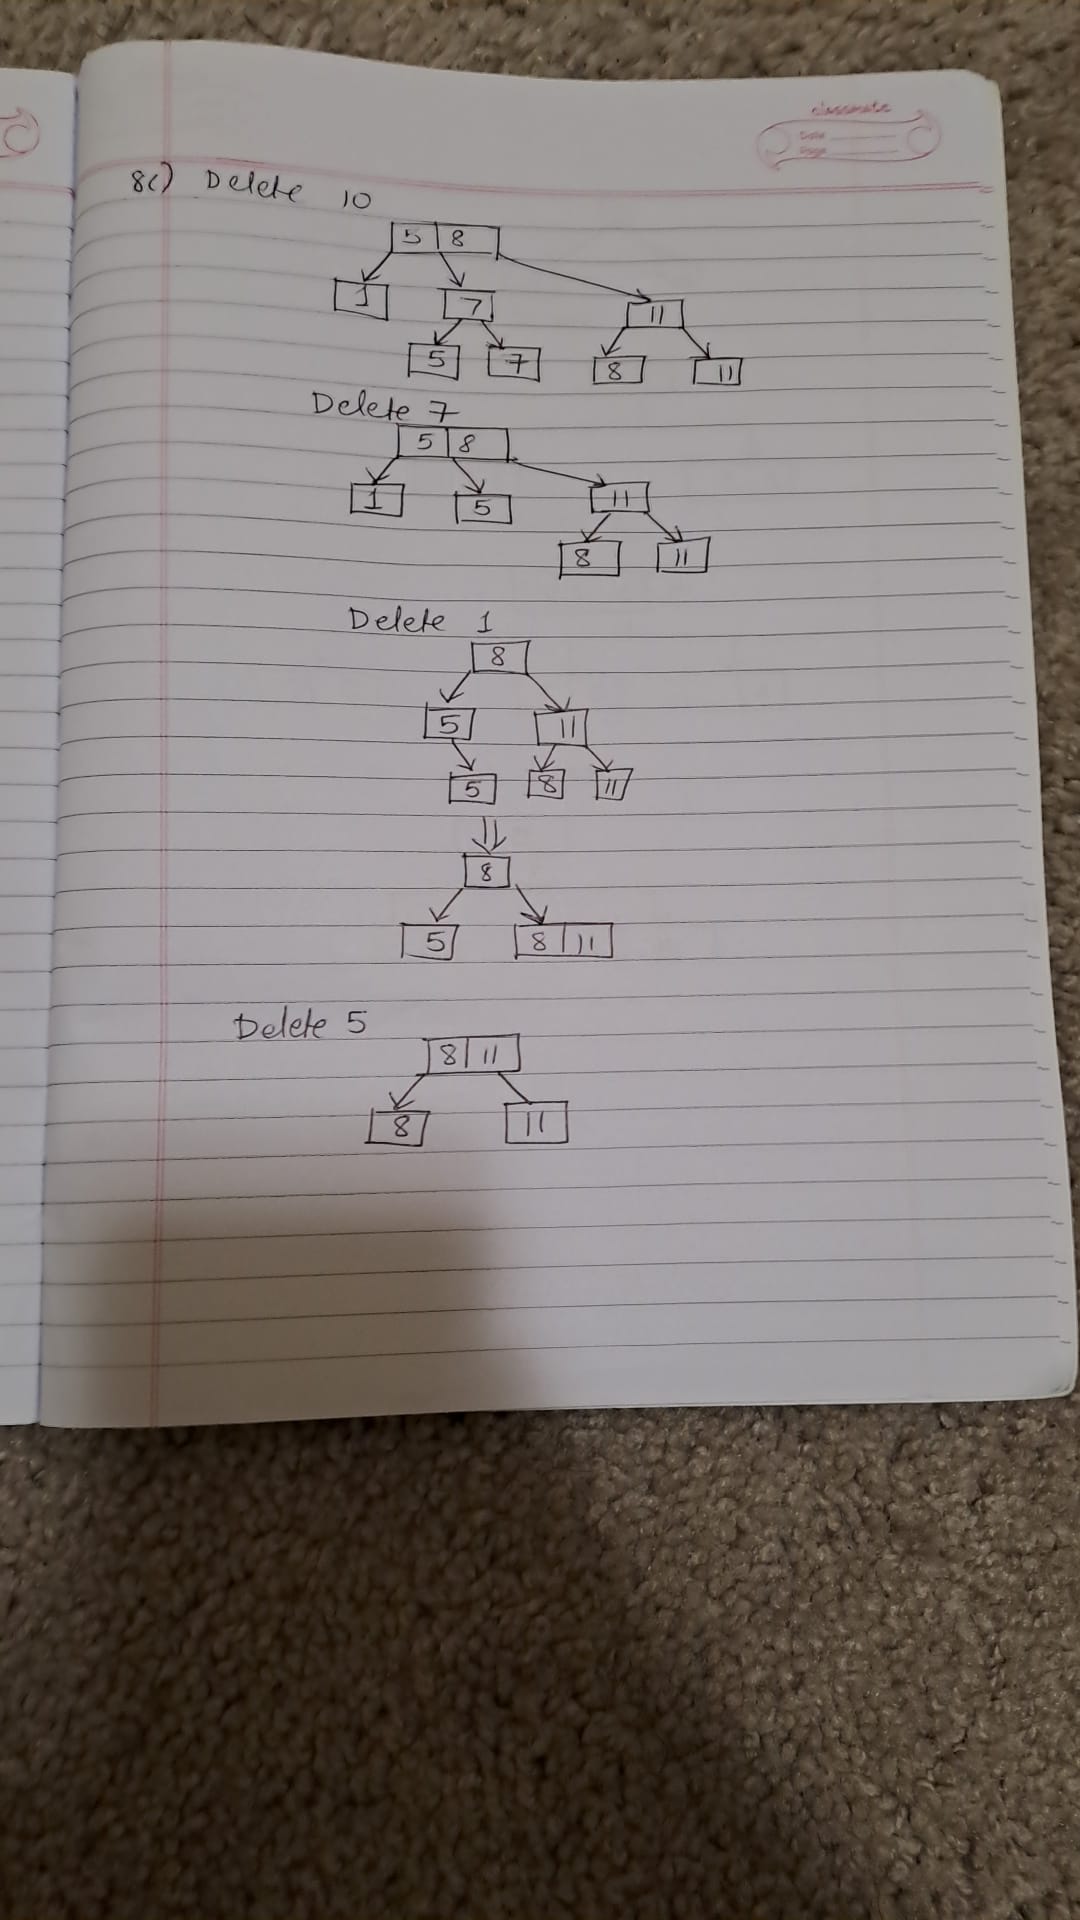 classmate
Date
Page
8c) Delete 10
5 8
1 7 11
5 7 8 11
Delete 7
5 8
1 5 11
8 11
Delete 1
8
5 11
5 8 11
8
5 8 11
Delete 5
8 11
8 11